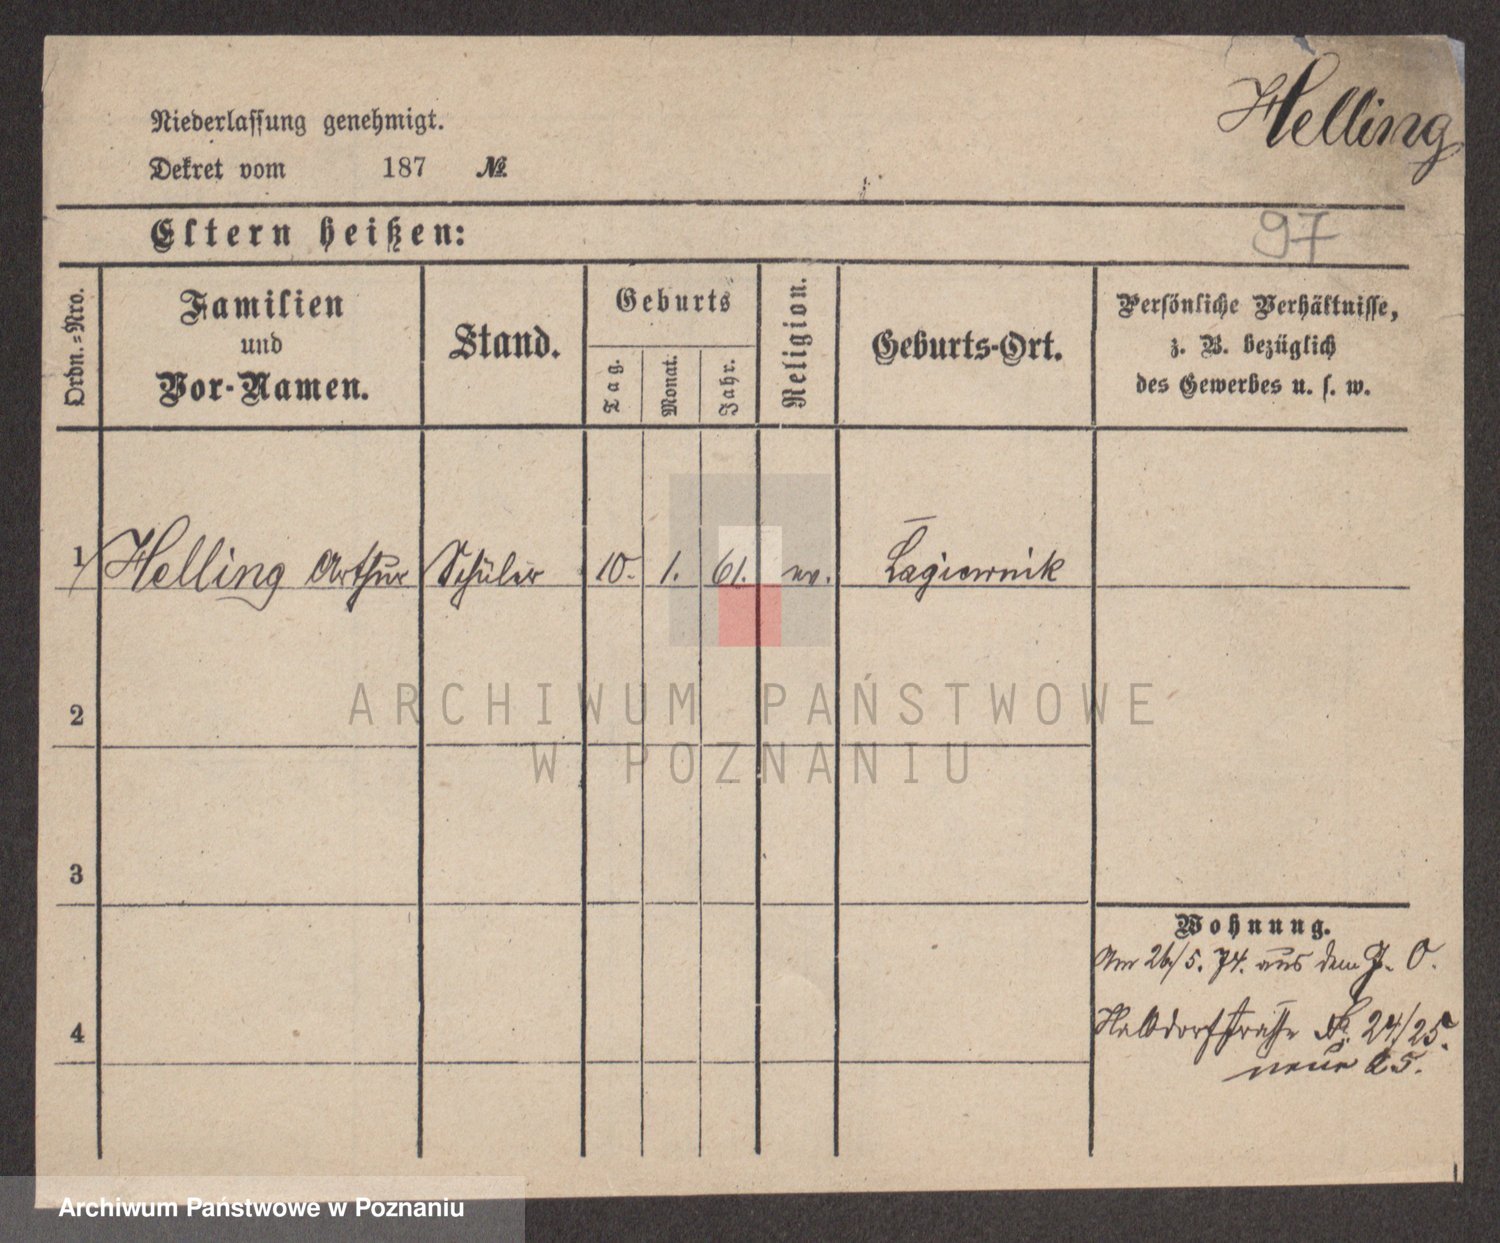 Helling
Niederlassung genehmigt.
Dekret vom 187 №
97
Eltern heißen:
Ordn.-Nro.
Familien
und
Vor-Namen.
Stand.
Geburts
Tag.
Monat.
Jahr.
Religion.
Geburts-Ort.
Persönliche Verhältnisse,
z. B. bezüglich
des Gewerbes u. s. w.
1 Helling Arthur Schüler 10. 1. 61. ev. Lagiewnik
2
ARCHIWUM PAŃSTWOWE
W POZNANIU
3
Wohnung.
Am 26/5. 74. aus dem J. O.
4
Halbdorfstrasse № 24/25.
neue 25.
Archiwum Państwowe w Poznaniu